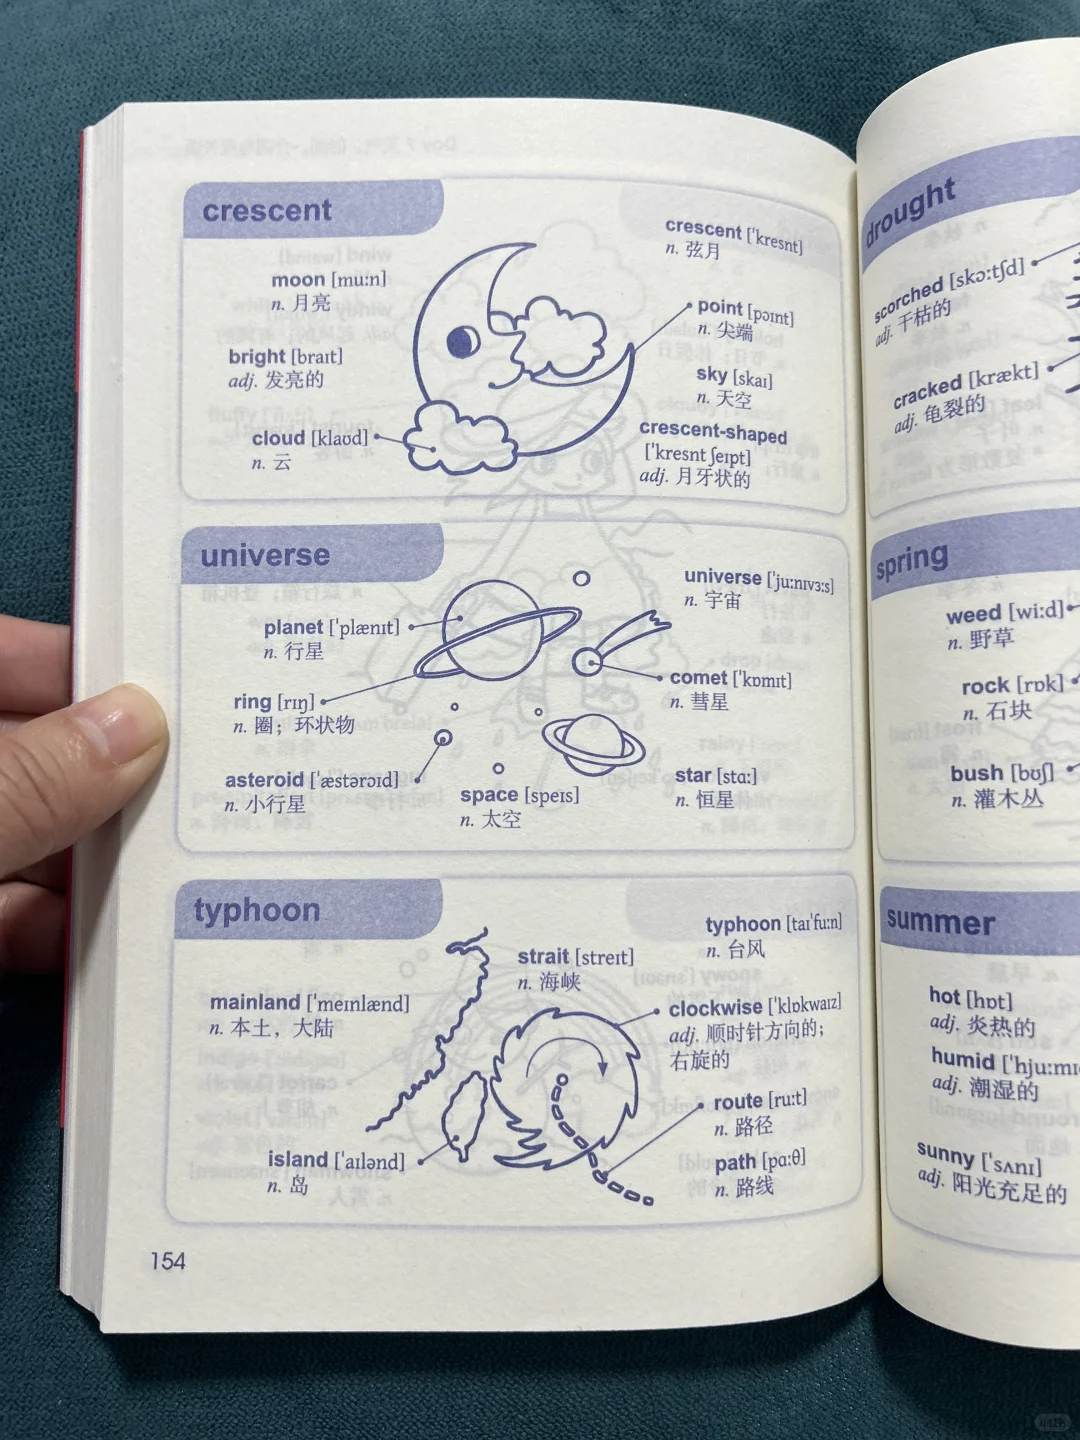 crescent
crescent ['kresnt]
n. 弦月
moon [mu:n]
n. 月亮
point [pɔɪnt]
n. 尖端
bright [braɪt]
adj. 发亮的
sky [skaɪ]
n. 天空
cloud [klaʊd]
n. 云
crescent-shaped
['kresnt ʃeɪpt]
adj. 月牙状的
universe
universe ['ju:nɪvɜ:s]
n. 宇宙
planet ['plænɪt]
n. 行星
comet ['kɒmɪt]
n. 彗星
ring [rɪŋ]
n. 圈；环状物
asteroid ['æstərɔɪd]
n. 小行星
space [speɪs]
n. 太空
star [stɑ:]
n. 恒星
typhoon
typhoon [taɪ'fu:n]
n. 台风
strait [streɪt]
n. 海峡
mainland ['meɪnlænd]
n. 本土，大陆
clockwise ['klɒkwaɪz]
adj. 顺时针方向的；
右旋的
route [ru:t]
n. 路径
island ['aɪlənd]
n. 岛
path [pɑ:θ]
n. 路线
154
drought
scorched [skɔ:tʃd]
adj. 干枯的
cracked [krækt]
adj. 龟裂的
spring
weed [wi:d]
n. 野草
rock [rɒk]
n. 石块
bush [bʊʃ]
n. 灌木丛
summer
hot [hɒt]
adj. 炎热的
humid ['hju:mɪ
adj. 潮湿的
sunny ['sʌnɪ]
adj. 阳光充足的
小红书